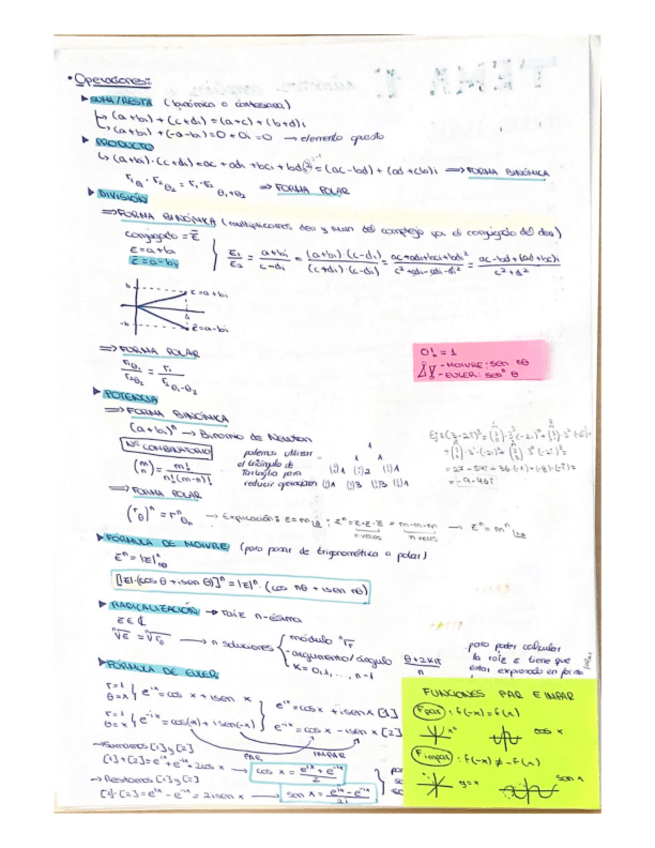 • Operaciones:
▸ SUMA/RESTA (binómica o cartesiana)
↳ (a+bi) + (c+di) = (a+c) + (b+d)i
↳ (a+bi) + (-a-bi) = 0 + 0i = 0 → elemento opuesto
▸ PRODUCTO
↳ (a+bi)·(c+di) = ac + adi + bci + bdi² = (ac-bd) + (ad+cb)i ⟹ FORMA BINÓMICA
r₁θ₁ · r₂θ₂ = r₁·r₂ θ₁+θ₂ ⟹ FORMA POLAR
▸ DIVISIÓN
⟹ FORMA BINÓMICA (multiplicamos den y num del complejo por el conjugado del den)
conjugado = z̄
z = a+bi
z̄ = a-bi
z₁/z₂ = a+bi/c-di = (a+bi)·(c-di)/(c+di)·(c-di) = ac+adi+bci+bdi²/c²+cdi-cdi-di² = ac-bd+(ad+bc)i/c²+d²
b
z = a+bi
a
-b
z̄ = a-bi
⟹ FORMA POLAR
r₁θ₁/r₂θ₂ = r₁/r₂ θ₁-θ₂
0! = 1
- MOIVRE: sen nθ
- EULER: senⁿ θ
▸ POTENCIA
⟹ FORMA BINÓMICA
(a+bi)ⁿ → Binomio de Newton
Nº COMBINATORIO
(m n) = m!/n!(m-n)!
podemos utilizar
el triángulo de
Tartaglia para
reducir operaciones
1
1 1
1 2 1
1 3 3 1
= -9-46i
⟹ FORMA POLAR
(rθ)ⁿ = rⁿ θn → Explicación: z = m θ; zⁿ = z·z·z = m·m·m → zⁿ = mⁿ
n veces n veces
▸ FÓRMULA DE MOIVRE (para pasar de trigonométrica a polar)
zⁿ = |z|ⁿ nθ
[|z|·(cos θ + i sen θ)]ⁿ = |z|ⁿ · (cos nθ + i sen nθ)
▸ RADICALIZACIÓN → raíz n-ésima
z ∈ ℂ
ⁿ√z = ⁿ√rθ → n soluciones
módulo ⁿ√r
- argumento/ángulo θ+2kπ/n
k = 0,1,..., n-1
- para poder calcular
la raíz z tiene que
estar expresado en forma
polar
▸ FÓRMULA DE EULER
r=1
θ=x } e^ix = cos x + i sen x
r=1
θ=x } e^-ix = cos(x) + i sen(-x)
e^ix = cos x + i sen x [1]
e^-ix = cos x - i sen x [2]
PAR IMPAR
→ Sumamos [1] y [2]
[1]+[2] = e^ix + e^-ix = 2cos x → cos x = e^ix + e^-ix/2
→ Restamos [1] y [2]
[1]-[2] = e^ix - e^-ix = 2i sen x → sen x = e^ix - e^-ix/2i
FUNCIONES PAR E IMPAR
F par : f(-x) = f(x)
x² cos x
F impar : f(-x) ≠ -f(x)
y = x sen x